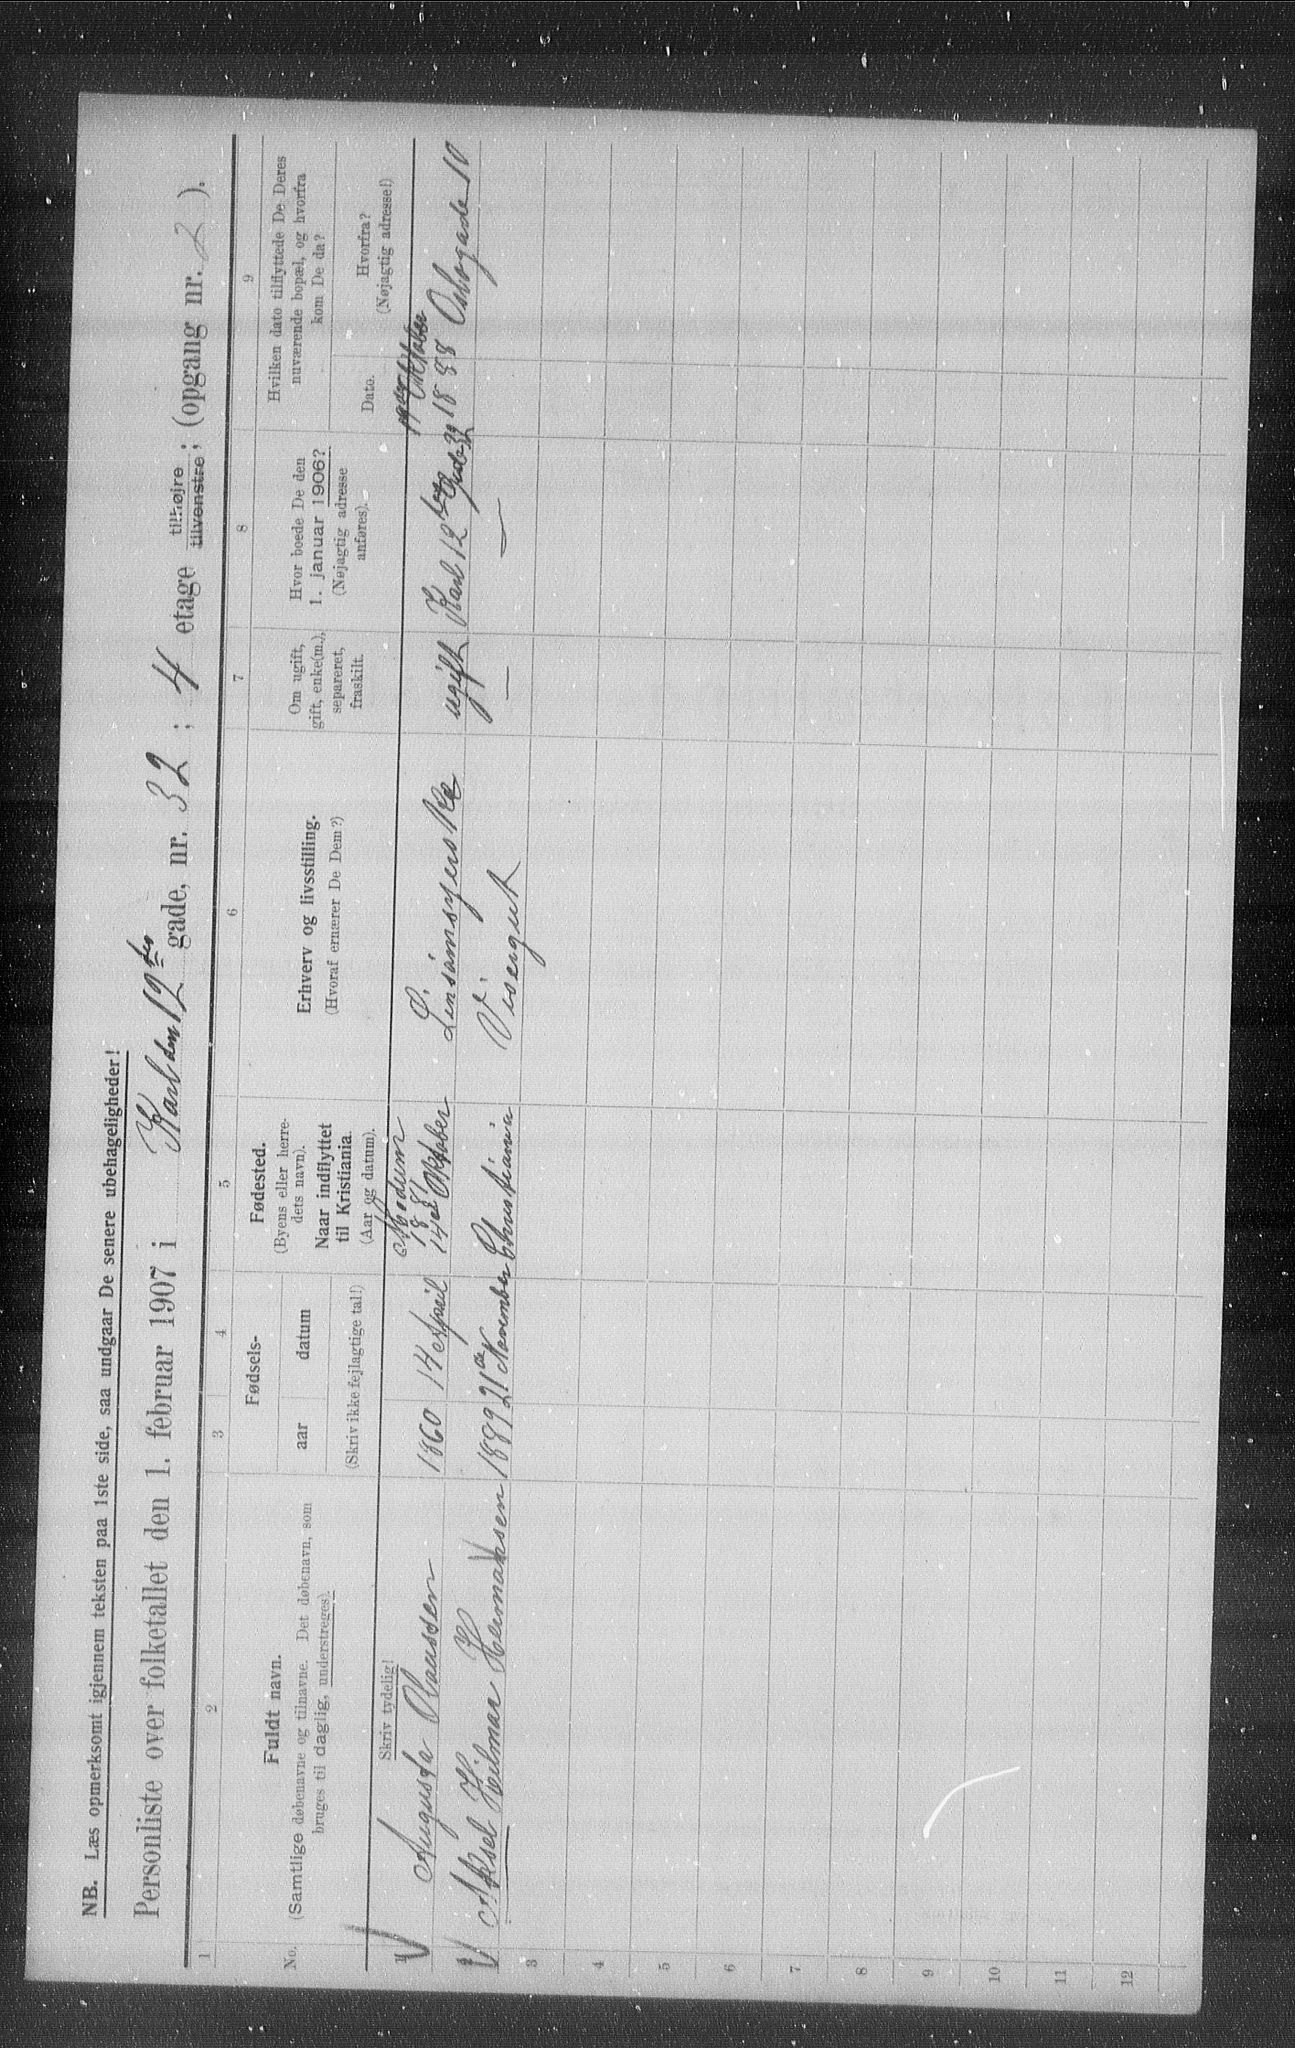 NB. Læs opmerksomt igjennem teksten paa 1ste side, saa undgaar De senere ubehageligheder!
Personliste over folketallet den 1. februar 1907 i Karl den 12 tes gade, nr. 32 ; 4 etage tilhøjre tilvenstre; (opgang nr. 2 ).
1 2 3 4 5 6 7 8 9
No.
Fuldt navn.
(Samtlige døbenavne og tilnavne. Det døbenavn, som
bruges til daglig, understreges).
Skriv tydelig!
Fødsels-
aar datum
(Skriv ikke fejlagtige tal!)
Fødested.
(Byens eller herre-
dets navn).
Naar indflyttet
til Kristiania.
(Aar og datum).
Erhverv og livsstilling.
(Hvoraf ernærer De Dem?)
Om ugift,
gift, enke(m.),
separeret,
fraskilt.
Hvor boede De den
1. januar 1906?
(Nøjagtig adresse
anføres).
Hvilken dato tilflyttede De Deres
nuværende bopæl, og hvorfra
kom De da?
Dato.
Hvorfra?
(Nøjagtig adresse!)
1 Augusta Olaussen 1860 14 April Modum 1881 14de Oktober Linsømsyerske ugift Karl 12 tes Gade 32 Oktober 1888 Oslogade 10
2 Aksel Hilmar Hermansen 1889 21de November Christiania Visergut — —
3
4
5
6
7
8
9
10
11
12